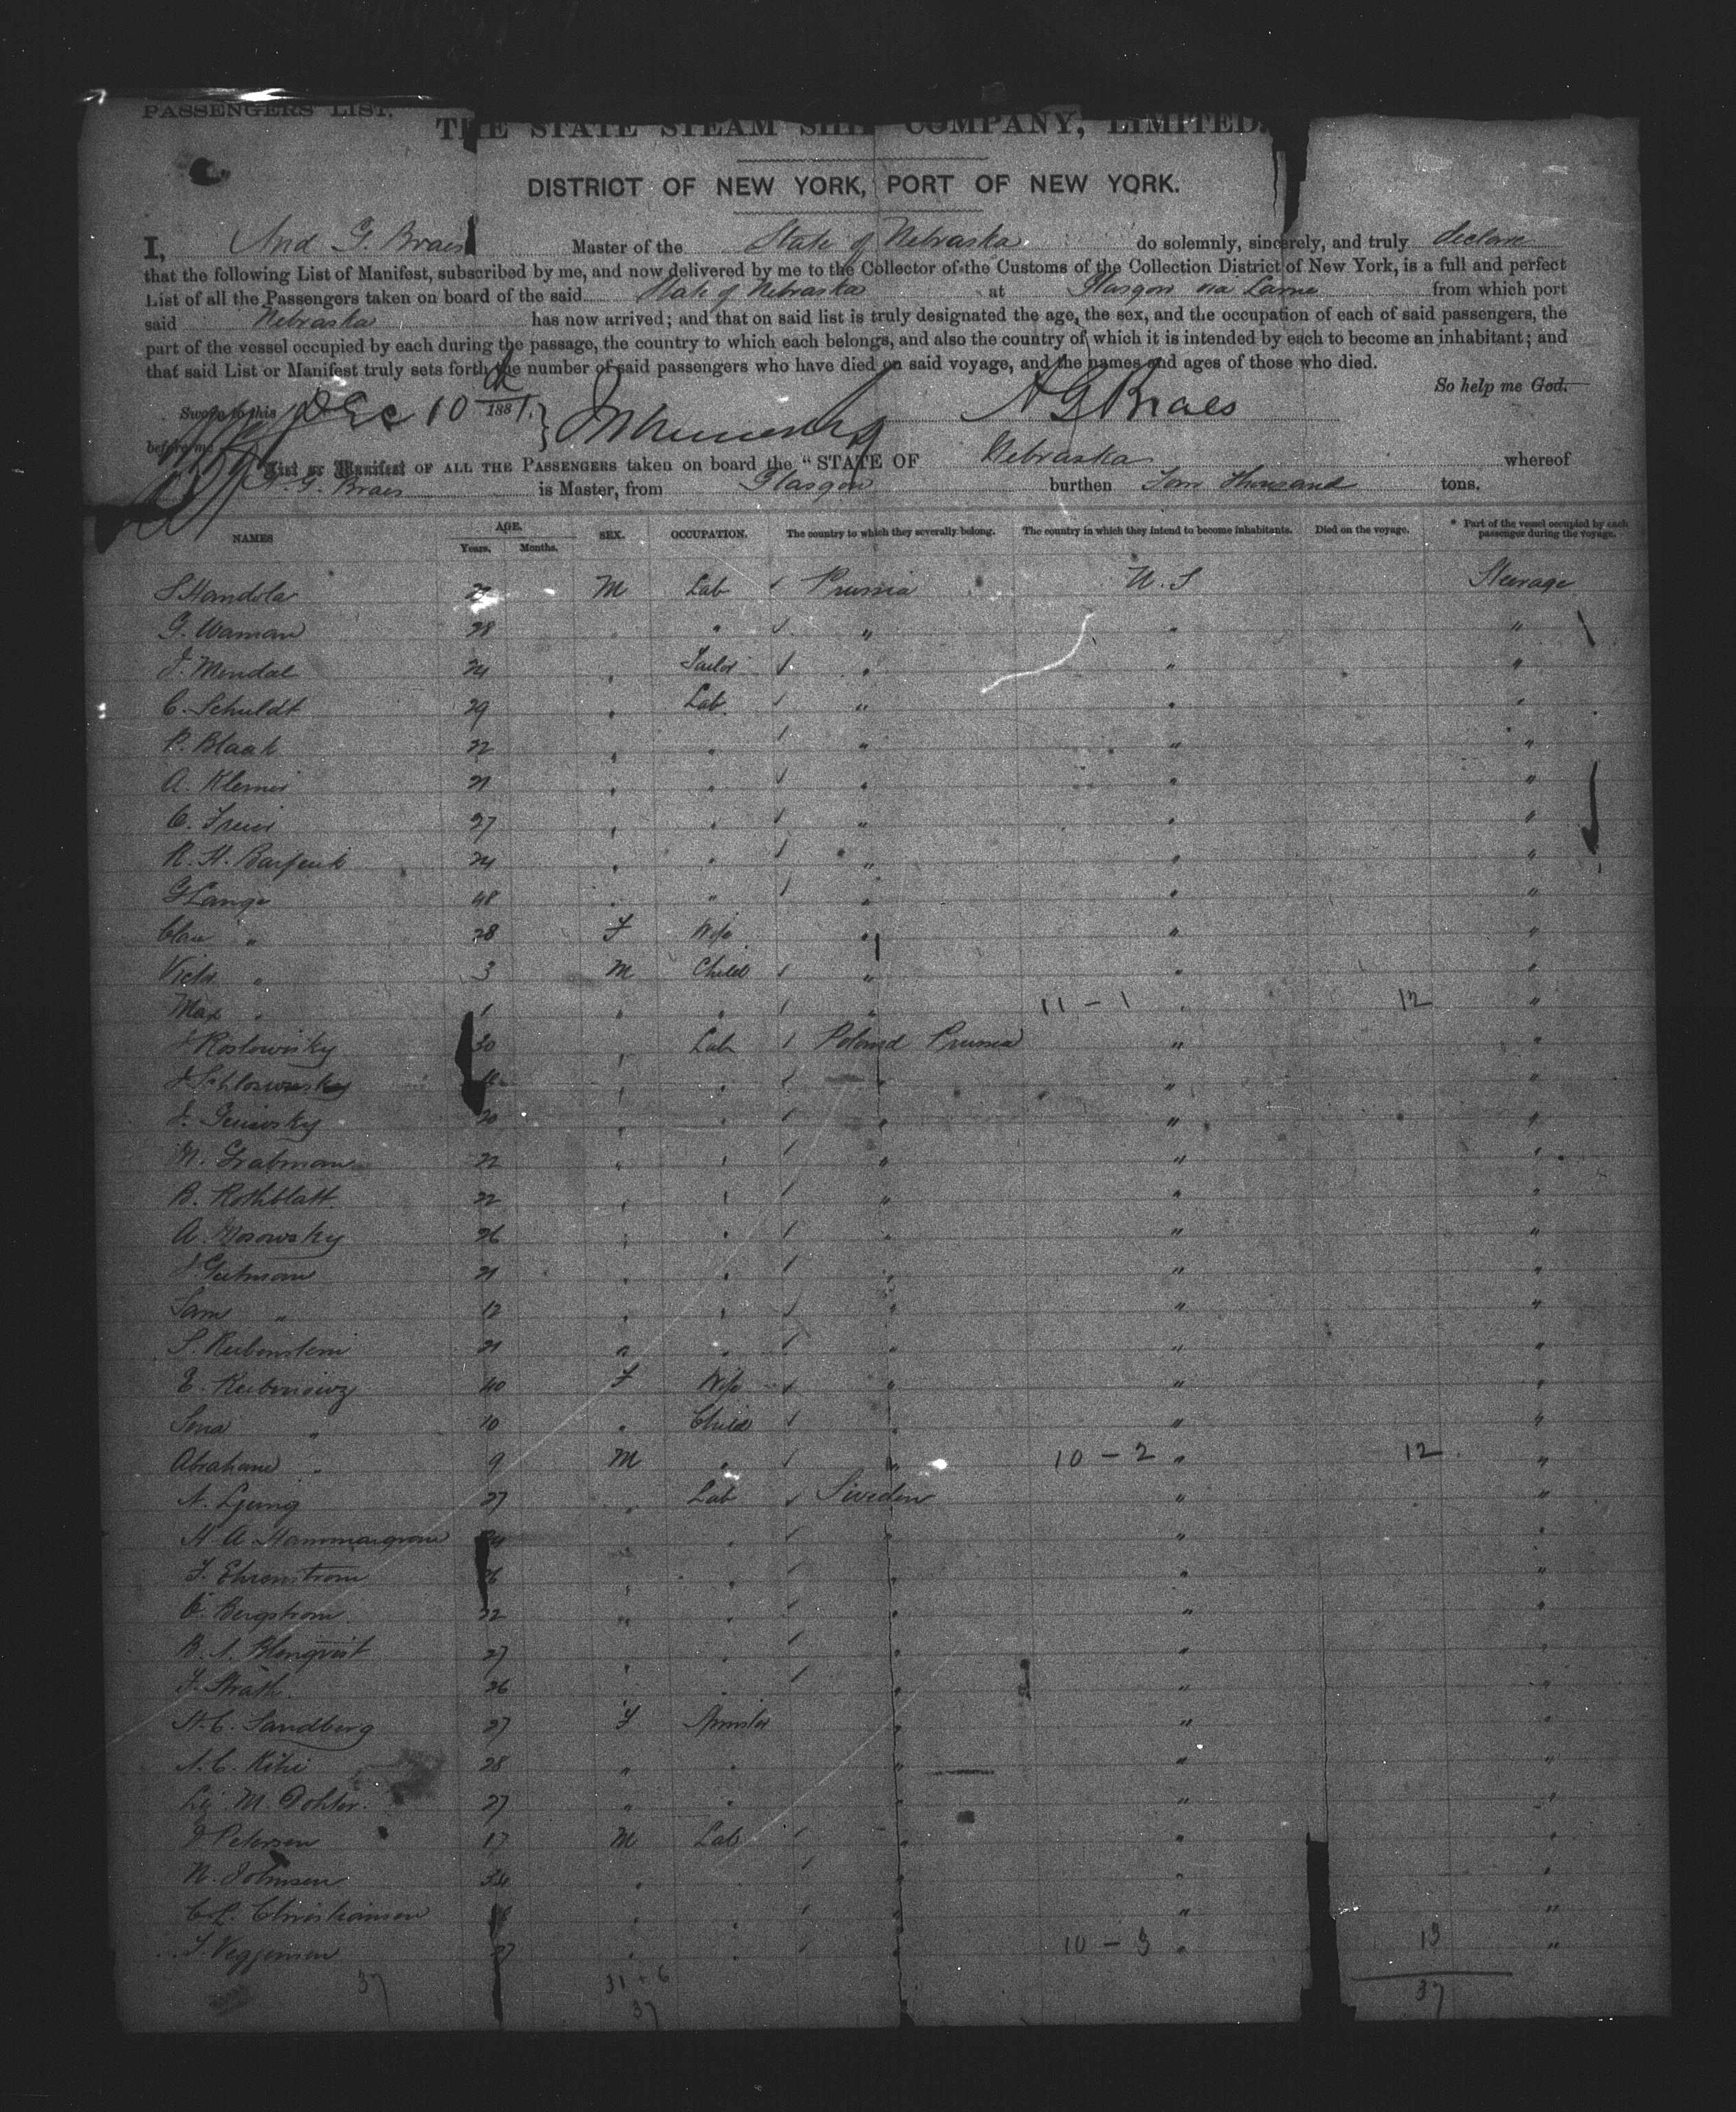 PASSENGERS' LIST.
THE STATE STEAM SHIP COMPANY, LIMITED.
DISTRICT OF NEW YORK, PORT OF NEW YORK.
I, And G. Braes Master of the State of Nebraska do solemnly, sincerely, and truly declare
that the following List of Manifest, subscribed by me, and now delivered by me to the Collector of the Customs of the Collection District of New York, is a full and perfect
List of all the Passengers taken on board of the said State of Nebraska at Glasgow via Larne from which port
said Nebraska has now arrived; and that on said list is truly designated the age, the sex, and the occupation of each of said passengers, the
part of the vessel occupied by each during the passage, the country to which each belongs, and also the country of which it is intended by each to become an inhabitant; and
that said List or Manifest truly sets forth the number of said passengers who have died on said voyage, and the names and ages of those who died.
So help me God.
Sworn to this Dec 10th 1881. A G Braes
before me
List or Manifest OF ALL THE PASSENGERS taken on board the "STATE OF Nebraska whereof
A. G. Braes is Master, from Glasgow burthen Four Thousand tons.
NAMES AGE. Years. Months. SEX. OCCUPATION. The country to which they severally belong. The country in which they intend to become inhabitants. Died on the voyage. * Part of the vessel occupied by each passenger during the voyage.
S Handola M Lab Prussia U. S Steerage
G. Waman 28 " " " "
J. Mendal 24 " Tailor " " "
C. Schuldt 29 " Lab " " "
P. Blaak 22 " " " " "
A. Klemis 21 " " " " "
C. 27 " " " " "
R. H. 24 " " " " "
G Lange 48 " " " " "
Clau " 28 F Wife " " "
Victr " 3 M Child " " "
Max " 1 " " " 11 - 1 " 12 "
J Rostowsky 30 " Lab Poland Prussia " "
J " " " " "
J. 20 " " " " "
N. Grabman 22 " " " " "
B. Rothblatt 22 " " " " "
A. Mosowsky 26 " " " " "
J Gutman 21 " " " " "
Sam " 12 " " " " "
S. Rubenstein 21 " " " " "
E. 40 F Wife " " "
" 10 " Child " " "
Abraham " 9 M " " 10 - 2 " 12 "
N. Ljung 27 " Lab Sweden " "
H. A Hammargren " " " " "
F. Ehrenstrom 26 " " " " "
C. Bergstrom 22 " " " " "
B. A. Blomqvist 27 " " " " "
F. Strath 26 " " " " "
H. C. Sandberg 27 F Spinster " " "
A. C. 28 " " " " "
M. Dohter 27 " " " " "
J Petersen 17 M Lab " " "
N. Johnsen 34 " " " " "
C. P. Christiansen " " " " "
J. 27 " " " 10 - 3 " 13 "
37 31 + 6 37
37